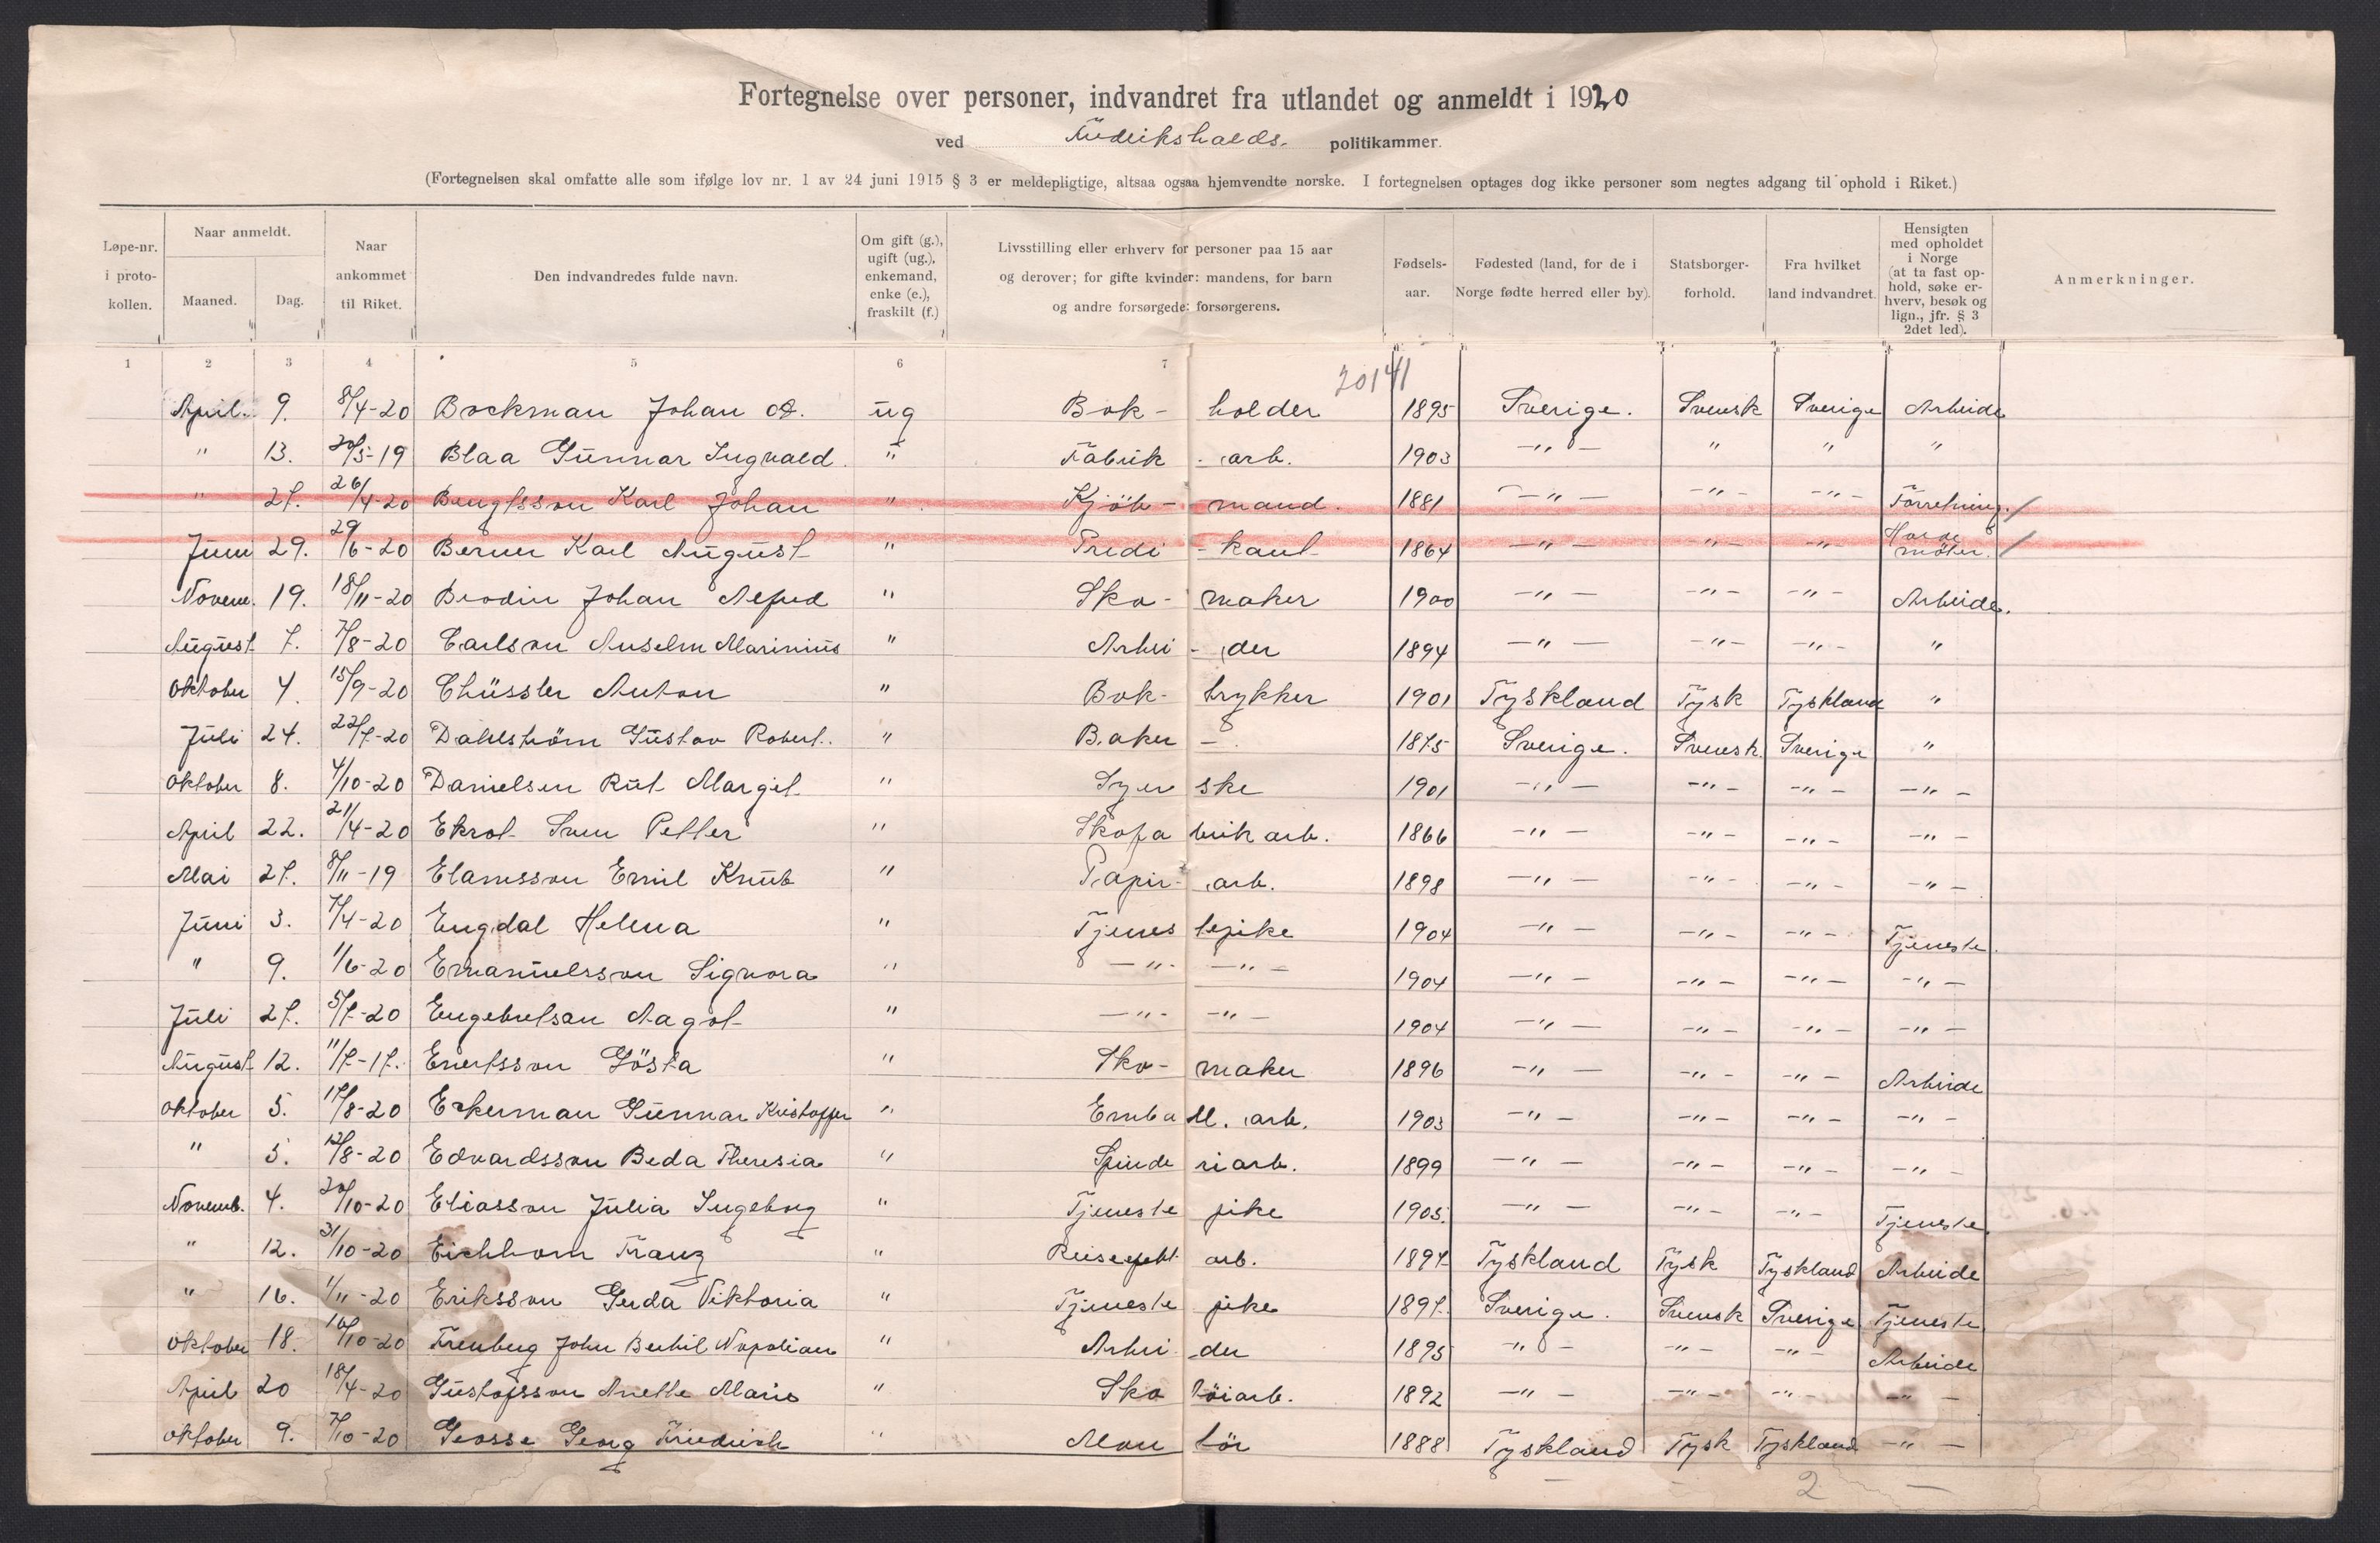 Fortegnelse over personer, indvandret fra utlandet og anmeldt i 1920
ved Fredrikshalds. politikammer.
(Fortegnelsen skal omfatte alle som ifølge lov nr. 1 av 24 juni 1915 § 3 er meldepligtige, altsaa ogsaa hjemvendte norske. I fortegnelsen optages dog ikke personer som negtes adgang til ophold i Riket.)
Løpe-nr. i proto-kollen. Naar anmeldt. Maaned. Dag. Naar ankommet til Riket. Den indvandredes fulde navn. Om gift (g.), ugift (ug.), enkemand, enke (e.), fraskilt (f.) Livsstilling eller erhverv for personer paa 15 aar og derover; for gifte kvinder: mandens, for barn og andre forsørgede: forsørgerens. Fødsels-aar. Fødested (land, for de i Norge fødte herred eller by). Statsborger-forhold. Fra hvilket land indvandret. Hensigten med opholdet i Norge (at ta fast op-hold, søke er-hverv, besøk og lign., jfr. § 3 2det led). Anmerkninger.
1 2 3 4 5 6 7
20141
April. 9. 8/4-20 Bockman Johan O. ug Bok- holder 1895 Sverige. Svensk Sverige Arbeide
" 13. 20/5-19 Blaa Gunnar Ingvald. " Fabrik - arb. 1903 -"- " " "
" 27. 26/4-20 Bengtsson Karl Johan " Kjöb- mand. 1881 -"- -"- -"- Forretning. /
Juni 29. 29/6-20 Berner Karl August " Predi - kant 1864 -"- -"- -"- Holde möter. /
Novem. 19. 18/11-20 Brodin Johan Alfred " Sko- maker 1900 -"- -"- -"- Arbeide.
August 7. 7/8-20 Carlson Anselm Marinius " Arbei - der 1894 -"- -"- -"- "
Oktober 4. 15/9-20 Chüssler Anton " Bok- trykker 1901 Tyskland Tysk Tyskland "
Juli 24. 22/7-20 Dahlström Gustav Robert. " Baker -. 1875 Sverige. Svensk. Sverige "
Oktober 8. 4/10-20 Danielsen Rut Margit " Syer ske 1901 -"- -"- -"- -"-
April 22. 21/4-20 Ekrot Sven Petter " Skofa brik arb. 1866 -"- -"- -"- -"-
Mai 27. 8/11-19 Elamsson Emil Knut " Papir- arb. 1898 -"- -"- -"- -"-
Juni 3. 7/4-20 Engdal Helena " Tjenes tepike 1904 -"- -"- -"- Tjeneste.
" 9. 1/6-20 Emanuelsson Signora " -"- -"- 1904 -"- -"- -"- -"-
Juli 27. 5/7-20 Engebretsen Aagot " -"- -"- 1904 -"- -"- -"- -"-
August 12. 11/7-17. Enertsson Gösta " Sko- maker 1896 -"- -"- -"- Arbeide
Oktober 5. 17/8-20 Eckerman Gunnar Kristoffer " Emba ll. arb. 1903 -"- -"- -"- -"-
" 5. 12/8-20 Edvardsson Beda Theresia " Spinde riarb. 1899 -"- -"- -"- -"-
Novemb. 4. 20/10-20 Eliasson Julia Ingeborg " Tjeneste pike 1905. -"- -"- -"- Tjeneste
" 12. 31/10-20 Eichhorn Franz " Reiseefekt arb. 1894 Tyskland Tysk Tyskland Arbeide
" 16. 1/11-20 Eriksson Gerda Viktoria " Tjeneste pike 1897. Sverige. Svensk Sverige Tjeneste
Oktober 18. 16/10-20 Frenberg John Bertil Napolion " Arbei der 1895 -"- -"- -"- Arbeide
April 20 18/4-20 Gustafsson Anette Marie " Sko töiarb. 1892 -"- -"- -"- -"-
Oktober 9. 7/10-20 Grosse Georg Friedrich " Mon tör 1888 Tyskland Tysk Tyskland -"-
2